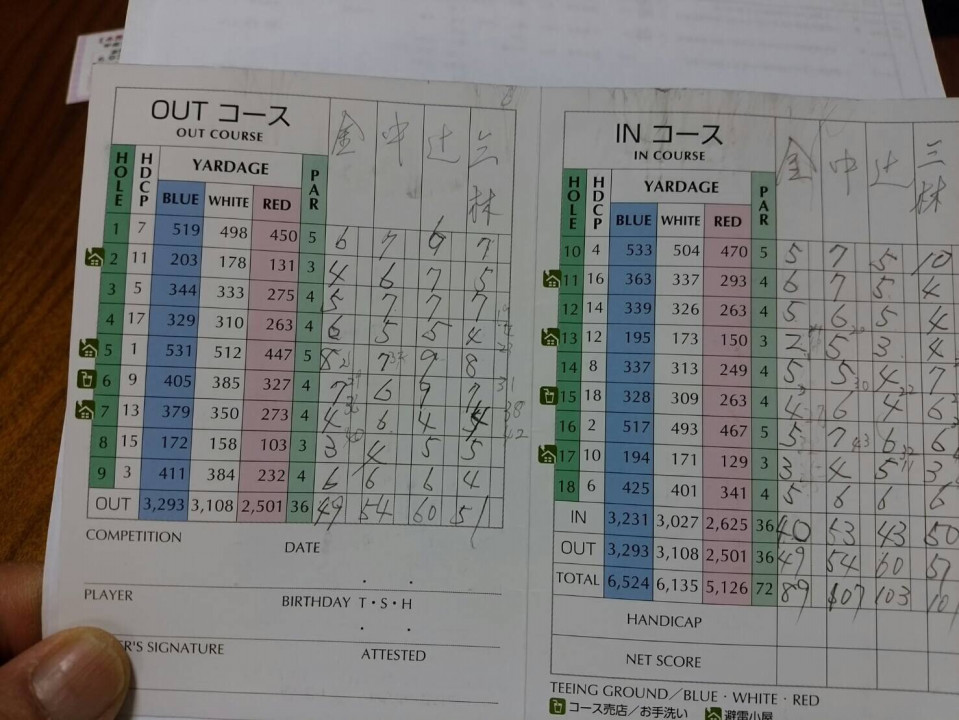 OUT コース
OUT COURSE
金 中 辻 三林
HOLE HDCP YARDAGE PAR
BLUE WHITE RED
1 7 519 498 450 5 6 7 9 7
2 11 203 178 131 3 4 6 7 5
3 5 344 333 275 4 5 7 7 7
4 17 329 310 263 4 6 5 5 4
5 1 531 512 447 5 8 7 9 8
6 9 405 385 327 4 7 6 9 7
7 13 379 350 273 4 4 6 4 4
8 15 172 158 103 3 3 4 5 5
9 3 411 384 232 4 6 6 6 4
OUT 3,293 3,108 2,501 36 49 54 60 51
COMPETITION
DATE
PLAYER
BIRTHDAY T・S・H
ER'S SIGNATURE
ATTESTED
IN コース
IN COURSE
金 中 辻 三林
HOLE HDCP YARDAGE PAR
BLUE WHITE RED
10 4 533 504 470 5 5 7 5 10
11 16 363 337 293 4 6 7 5 4
12 14 339 326 263 4 5 6 5 4
13 12 195 173 150 3 2 5 3 4
14 8 337 313 249 4 5 5 4 7
15 18 328 309 263 4 4 6 4 6
16 2 517 493 467 5 5 7 6 6
17 10 194 171 129 3 3 4 5 3
18 6 425 401 341 4 5 6 6 6
IN 3,231 3,027 2,625 36 40 53 43 50
OUT 3,293 3,108 2,501 36 49 54 60 51
TOTAL 6,524 6,135 5,126 72 89 107 103 101
HANDICAP
NET SCORE
TEEING GROUND／BLUE・WHITE・RED
コース売店／お手洗い 避雷小屋